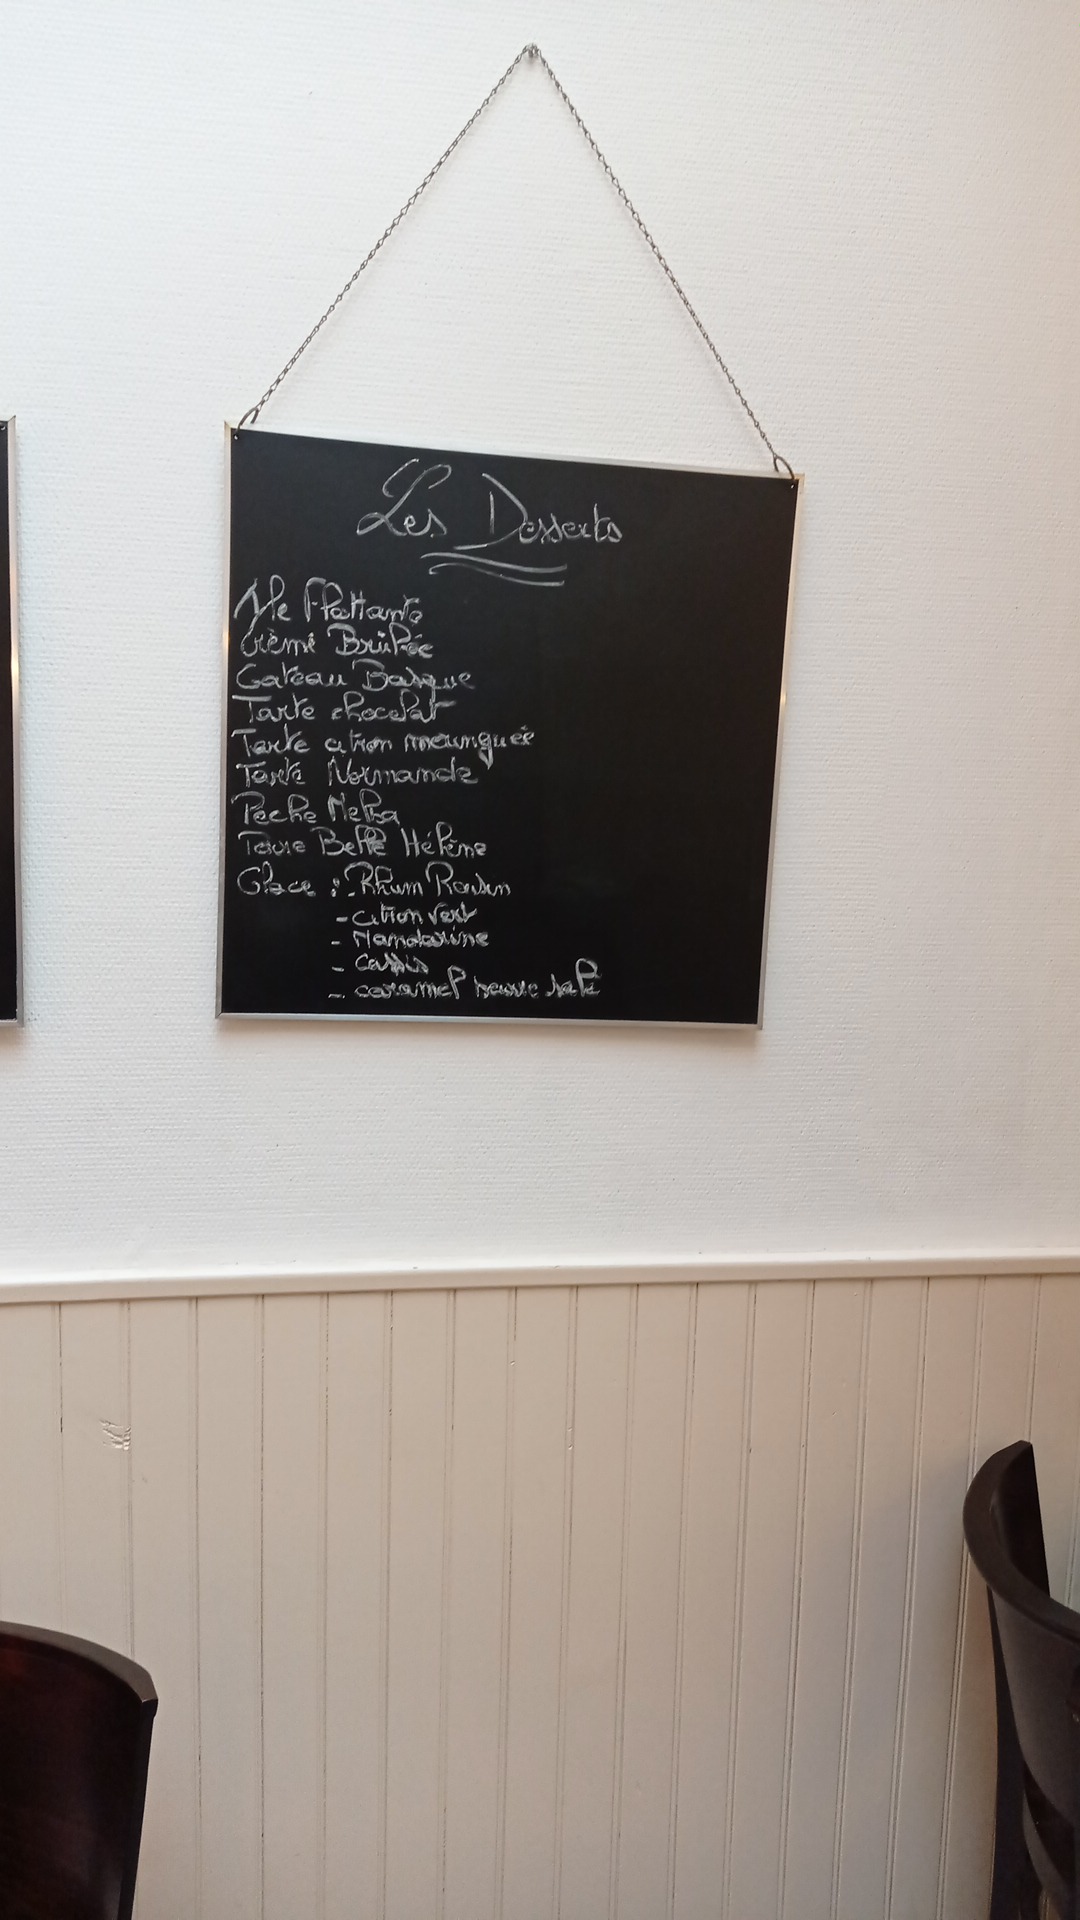 Les Desserts
Ile Flottante
Crème Brûlée
Gateau Basque
Tarte chocolat
Tarte citron meringuée
Tarte Normande
Peche Melba
Poire Belle Hélène
Glace : - Rhum Raisin
- citron vert
- Mandarine
- cassis
- caramel beurre salé